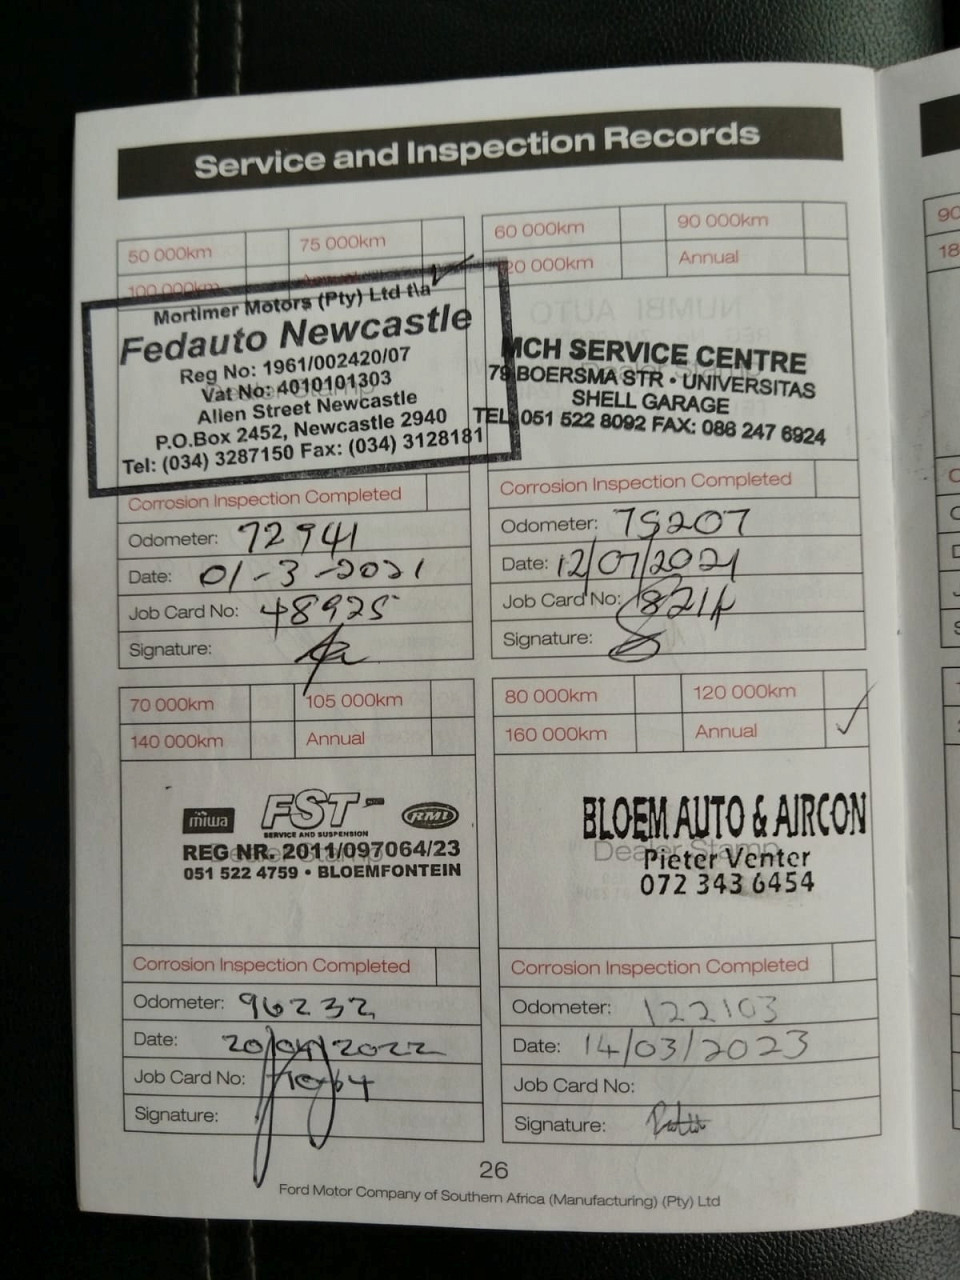 Service and Inspection Records
50 000km 75 000km
100 000km Annual
Mortimer Motors (Pty) Ltd t\a
Fedauto Newcastle
Reg No: 1961/002420/07
Vat No: 4010101303
Allen Street Newcastle
P.O.Box 2452, Newcastle 2940
Tel: (034) 3287150 Fax: (034) 3128181
Corrosion Inspection Completed
Odometer: 72941
Date: 01-3-2021
Job Card No: 48925
Signature:
60 000km 90 000km
120 000km Annual
NUMBI AUTO
MCH SERVICE CENTRE
79 BOERSMA STR • UNIVERSITAS
SHELL GARAGE
TEL 051 522 8092 FAX: 086 247 6924
Corrosion Inspection Completed
Odometer: 79207
Date: 12/07/2021
Job Card No:
Signature:
70 000km 105 000km
140 000km Annual
miwa FST RMI
SERVICE AND SUSPENSION
REG NR. 2011/097064/23
051 522 4759 • BLOEMFONTEIN
Corrosion Inspection Completed
Odometer: 96232
Date: 20/04/2022
Job Card No:
Signature:
80 000km 120 000km
160 000km Annual ✓
BLOEM AUTO & AIRCON
Dealer Stamp
Pieter Venter
072 343 6454
Corrosion Inspection Completed
Odometer: 122103
Date: 14/03/2023
Job Card No:
Signature:
26
Ford Motor Company of Southern Africa (Manufacturing) (Pty) Ltd